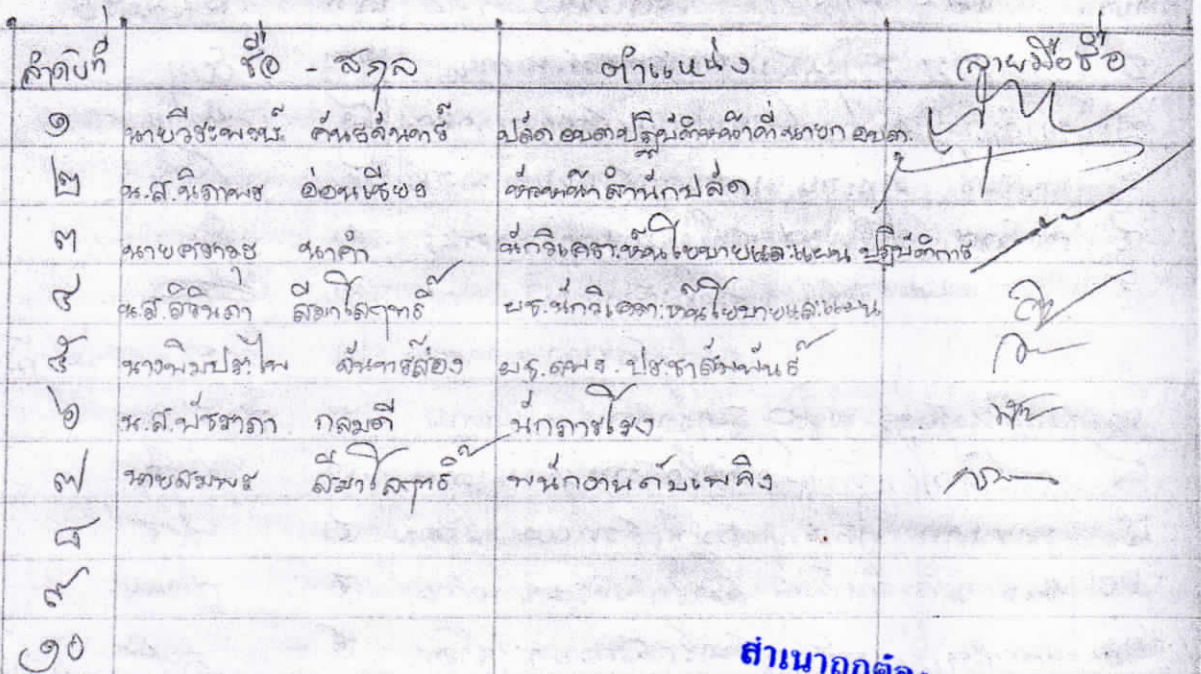 ลำดับที่ ชื่อ - สกุล ตำแหน่ง ลายมือชื่อ
๑ นายวีระพงษ์ ปลัด อบต.ปฏิบัติหน้าที่ นายก อบต.
๒ น.ส.นิภาพร อ่อนเฉียง หัวหน้าสำนักปลัด
๓ นายศราวุธ นาคำ นักวิเคราะห์นโยบายและแผน ปฏิบัติการ
๔ น.ส.สิรินภา สีมาโสฤทธิ์ ผช.นักวิเคราะห์นโยบายและแผน
๕ นางพิมประไพ จันทร์ส่อง ผช.จพง.ประชาสัมพันธ์
๖ น.ส.พัชราภา กลมดี นักการโรง
๗ นายสมพร สีมาโสฤทธิ์ พนักงานดับเพลิง
๘
๙
๑๐
สำเนาถูกต้อง